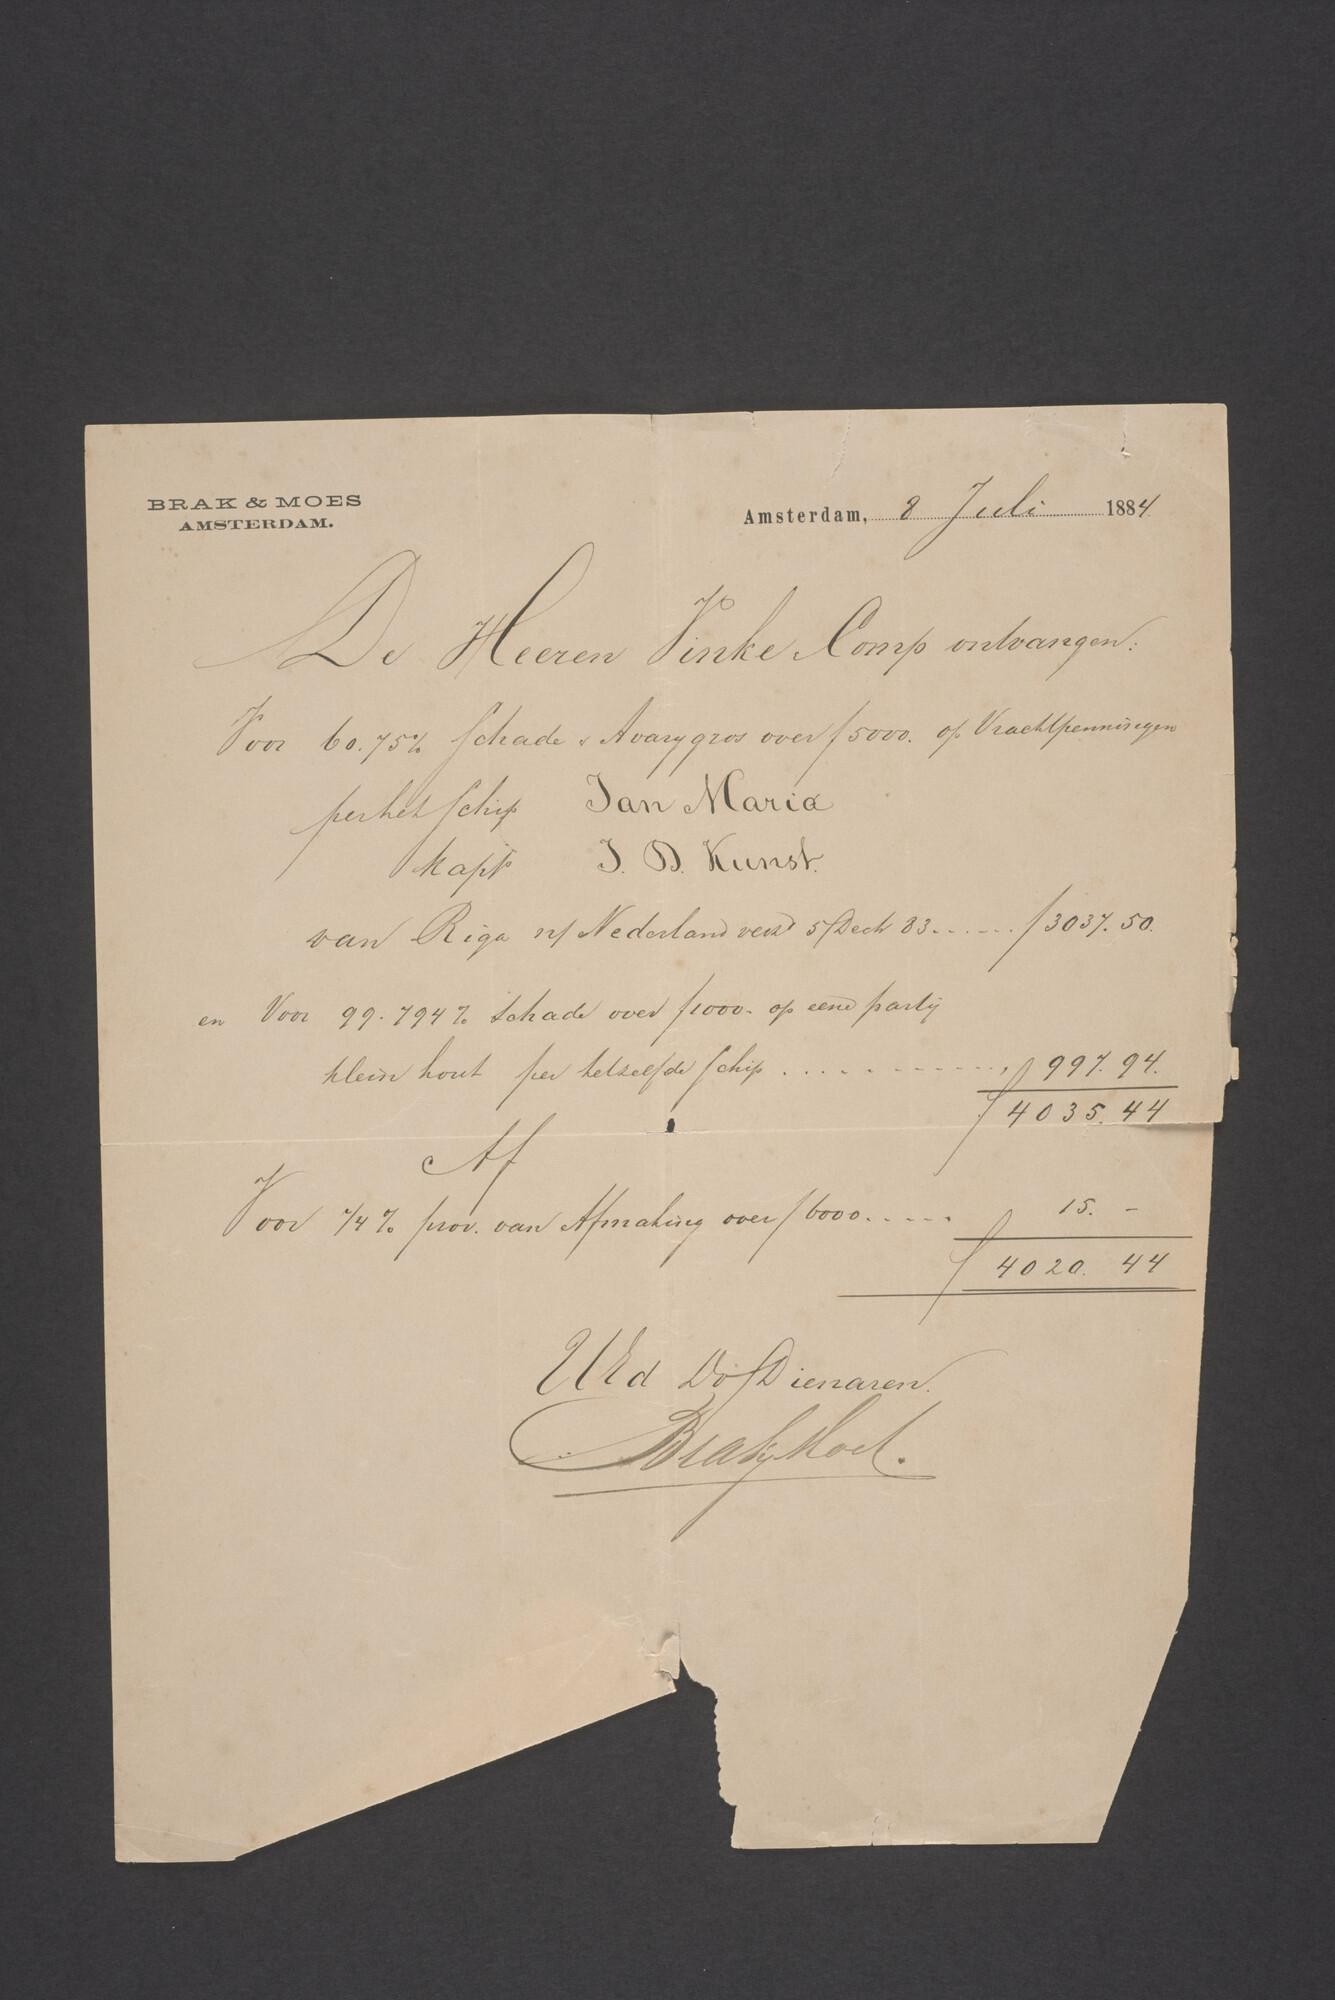 BRAK & MOES
AMSTERDAM.
Amsterdam, 8 Juli 1884
De Heeren Vinke & Comp ontvangen:
Voor 60.75% Schade & Avarygros over f 5000. op Vrachtpenningen
per het Schip Jan Maria
Kapt J. D. Kunst.
van Riga n/ Nederland verz 5/Dec 83 ...... f 3037.50.
en Voor 99.794% schade over f 1000. op eene partij
klein hout per hetzelfde Schip ........... f 997.94.
f 4035.44
Af
Voor 1/4% prov. van Afmaking over f 6000..... f 15. -
f 4020.44
UEd Dienaren.
Brak & Moes.